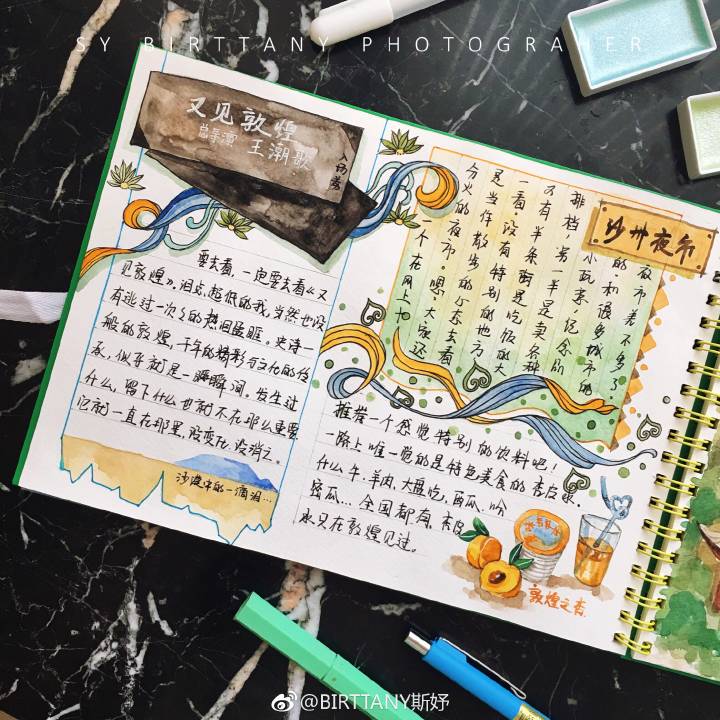 SY BIRTTANY PHOTOGRAHER
又见敦煌
总导演 王潮歌
入场券
要去看，一定要去看《又
见敦煌》，泪点超低的我，当然也没
有逃过一次次的热泪盈眶。史诗
般的敦煌，千年的精彩与文化的传
承，似乎就是一瞬间。发生过
什么，留下什么也就不在那么重要
记就一直在那里，没变化，没消亡。
沙漠中的一滴泪...
沙州夜市
夜市差不多了，
的和很多城市的
小玩意，纪念品
排档，另一半是卖各种
有半条街是吃饭的大
一看。没有特别的地方
是当作散步的心态去看
分火的夜市。嗯，大家还
个在网上十
推荐一个感觉特别的饮料吧！
一路上唯一觉的是特色美食的杏皮水。
什么牛、羊肉、大盘吃、西瓜、哈
密瓜...全国都有，杏皮
水只在敦煌见过。
敦煌之杏
@BIRTTANY斯妤